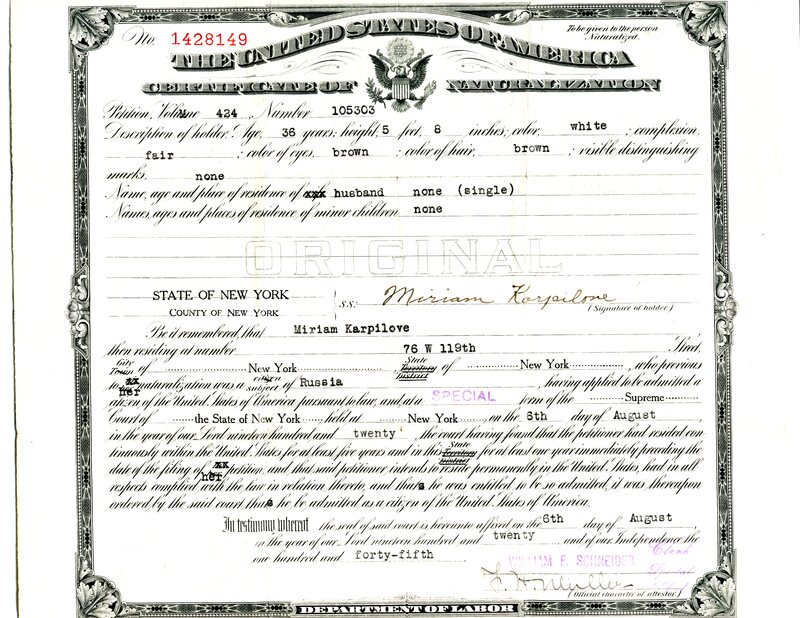 No. 1428149
To be given to the person Naturalized.
THE UNITED STATES OF AMERICA
CERTIFICATE OF NATURALIZATION
Petition, Volume 424 Number 105303
Description of holder: Age, 36 years; height, 5 feet, 8 inches; color, white; complexion,
fair; color of eyes, brown; color of hair, brown; visible distinguishing
marks, none
Name, age and place of residence of xxx husband none (single)
Names, ages and places of residence of minor children none
ORIGINAL
STATE OF NEW YORK
COUNTY OF NEW YORK
S.S:
Miriam Karpilove
(Signature of holder.)
Be it remembered, that Miriam Karpilove
then residing at number 76 W 119th Street,
City Town of New York State Territory District New York, who previous
to xx her naturalization was a citizen subject of Russia, having applied to be admitted a
citizen of the United States of America pursuant to law, and at a SPECIAL term of the Supreme
Court of the State of New York held at New York, on the 6th day of August
in the year of our Lord nineteen hundred and twenty, the court having found that the petitioner had resided con
tinuously within the United States for at least five years and in this State Territory District for at least one year immediately preceding the
date of the filing of xx her petition, and that said petitioner intends to reside permanently in the United States, had in all
respects complied with the law in relation thereto, and that s he was entitled to be so admitted, it was thereupon
ordered by the said court that s he be admitted as a citizen of the United States of America.
In testimony whereof the seal of said court is hereunto affixed on the 6th day of August
in the year of our Lord nineteen hundred and twenty and of our Independence the
one hundred and forty-fifth
WILLIAM F. SCHNEIDER Clerk
Special
F. H. Muller
(Official character of attestor.)
DEPARTMENT OF LABOR